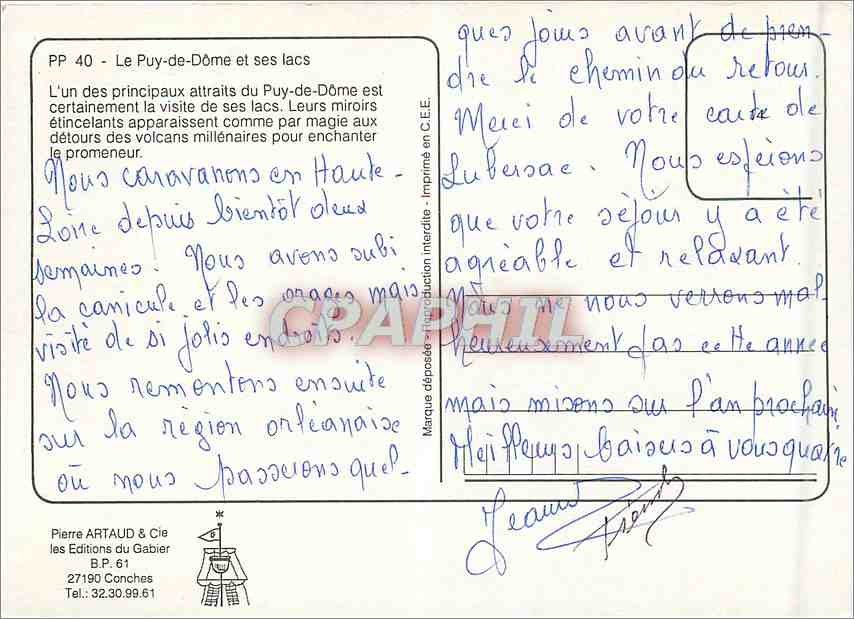 PP 40 - Le Puy-de-Dôme et ses lacs
L'un des principaux attraits du Puy-de-Dôme est
certainement la visite de ses lacs. Leurs miroirs
étincelants apparaissent comme par magie aux
détours des volcans millénaires pour enchanter
le promeneur.
Nous caravanons en Haute-
Loire depuis bientôt deux
semaines. Nous avons subi
la canicule et les orages mais
visité de si jolis endroits.
Nous remontons ensuite
sur la région orléanaise
où nous passerons quel-
Marque déposée - Reproduction interdite - Imprimé en C.E.E.
ques jours avant de pren-
dre le chemin du retour.
Merci de votre carte de
Lubersac. Nous espérons
que votre séjour y a été
agréable et relaxant.
Nous ne nous verrons mal-
heureusement pas cette année
mais misons sur l'an prochain
Meilleurs baisers à vous quatre
CPAPHIL
Pierre ARTAUD & Cie
les Editions du Gabier
B.P. 61
27190 Conches
Tel.: 32.30.99.61